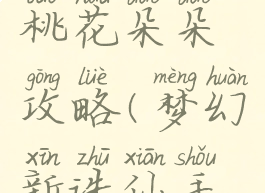 桃花朵朵
gōng lüè mèng huàn
攻略(梦幻
xīn zhū xiān shǒu
新诛仙手